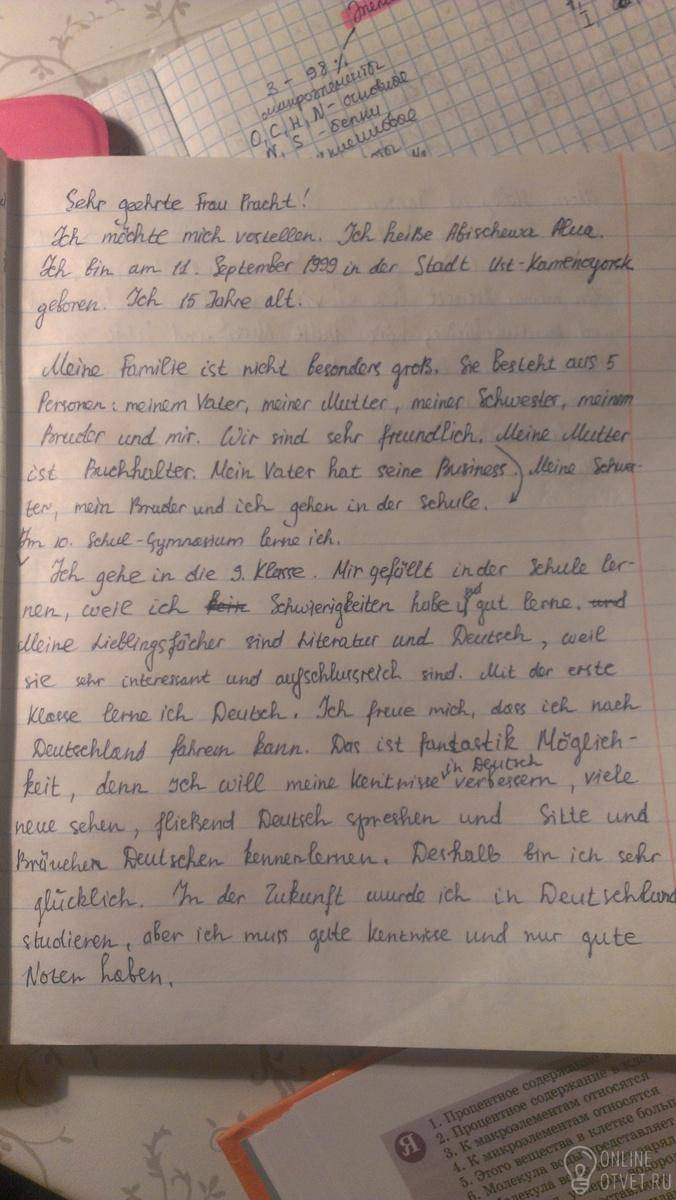 3 - 98 %
макроэлементы
O, C, H, N - основное
N, S - белки
Sehr geehrte Frau Pracht!
Ich möchte mich vostellen. Ich heiße Abischewa Alua.
Ich bin am 11. September 1999 in der Stadt Ust-Kamenegorsk
geboren. Ich 15 Jahre alt.
Meine Familie ist nicht besonders groß. Sie besteht aus 5
Personen: meinem Vater, meiner Mutter, meiner Schwester, meinem
Bruder und mir. Wir sind sehr freundlich. Meine Mutter
ist Buchhalter. Mein Vater hat seine Business. Meine Schwes-
ter, mein Bruder und ich gehen in der Schule.
Im 10. Schul-Gymnasium lerne ich.
Ich gehe in die 9. Klasse. Mir gefällt in der Schule ler-
nen, weil ich kein Schwierigkeiten habe und gut lerne. und
Meine Lieblingsfächer sind Literatur und Deutsch, weil
sie sehr interessant und aufschlussreich sind. Mit der erste
Klasse lerne ich Deutsch. Ich freue mich, dass ich nach
Deutschland fahren kann. Das ist fantastik Möglich-
keit, denn ich will meine Kentnisse in Deutsch verbessern, viele
neue sehen, fließend Deutsch spreshen und Sitte und
Bräuchen Deutschen kennenlernen. Deshalb bin ich sehr
glücklich. In der Zukunft wurde ich in Deutschland
studieren, aber ich muss gute Kentnisse und nur gute
Noten haben.
Я
1. Процентное содержание
2. Процентное содержание в кле
3. К макроэлементам относятся
4. К микроэлементам относятся
5. Этого вещества в клетке больш
6. Молекула воды представляет
ONLINE
OTVET.RU